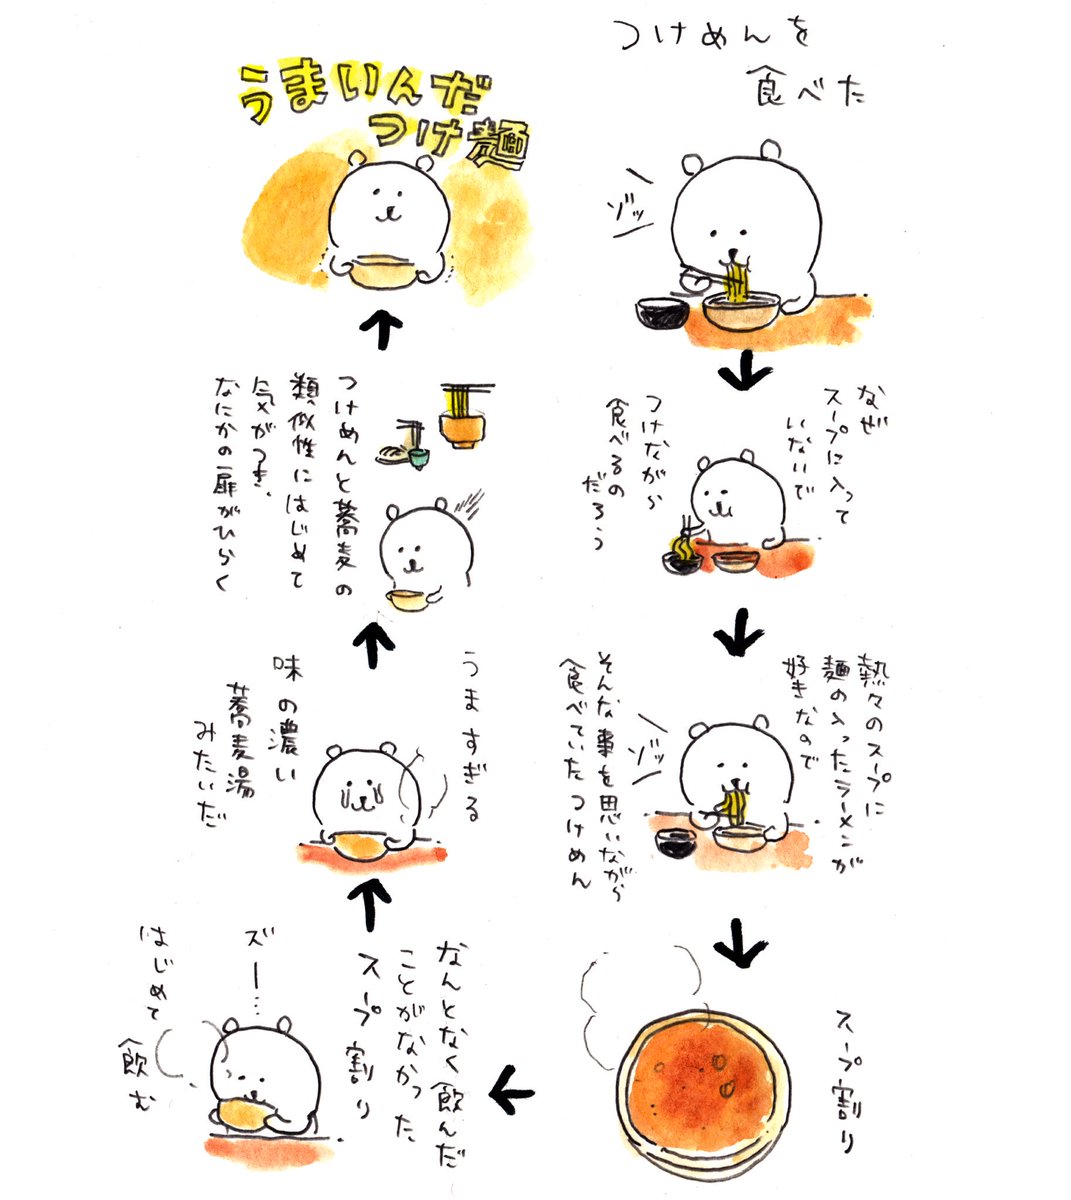 つけめんを
食べた
ゾッ
なぜ
スープに入って
いないで
つけながら
食べるの
だろう
熱々のスープに
麺の入ったラーメンが
好きなので
ゾッ
そんな事を思いながら
食べていたつけめん
スープ割り
なんとなく飲んだ
ことがなかった
スープ割り
ズー…
はじめて
飲む
うますぎる
味の濃い
蕎麦湯
みたいだ
つけめんと蕎麦の
類似性にはじめて
気がつき、
なにかの扉がひらく
うまいんだ
つけ麺